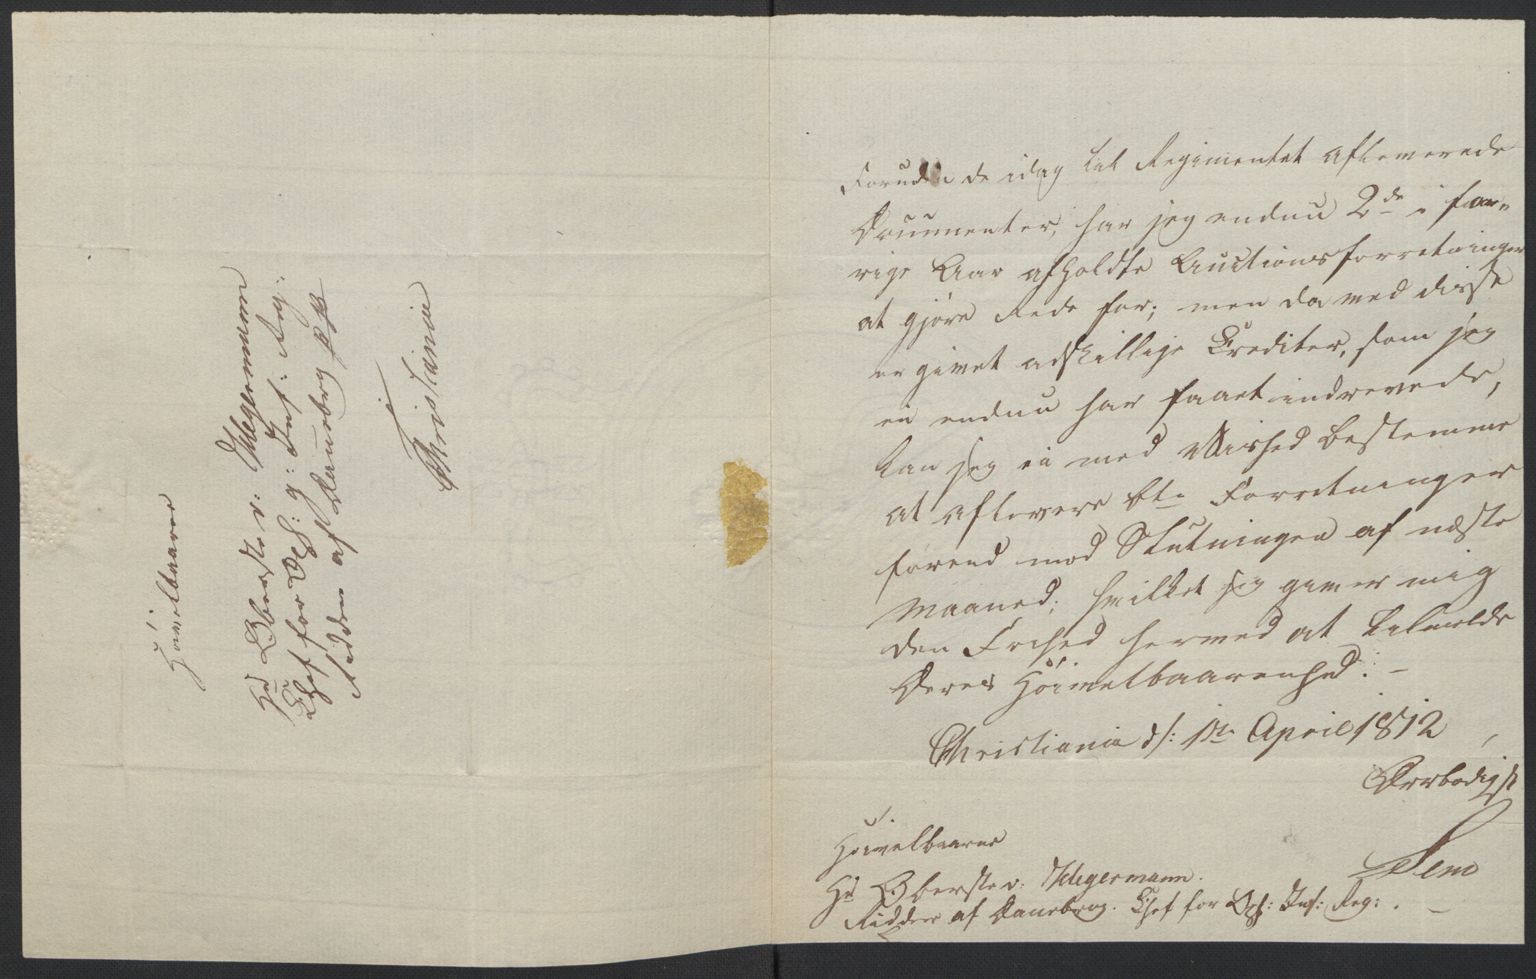 Høivelbaarne
Hr Oberste v. Hegermann
Chef for Opl: g: Inf: Reg:
Ridder af Dannebrog pp
Christiania
Foruden de idag til Regimentet afleverede
Documenter, har jeg endnu 2de i for-
rige Aar afholdte Auctionsforretninger
at gjøre Rede for; men da ved disse
er givet adskillige Crediter, som jeg
ei endnu har faaet inddrevede,
kan jeg ei med Vished bestemme
at aflevere bte Forretninger
førend mod Slutningen af næste
Maaned; hvilket jeg giver mig
den Frihed hermed at tilmelde
Deres Høivelbaarenhed. –
Christiania d: 1te April 1812
Ærbødigst
Høivelbaarne
Hr Oberste v. Hegermann.
Ridder af Danebrog. Chef for Opl: Inf: Reg: